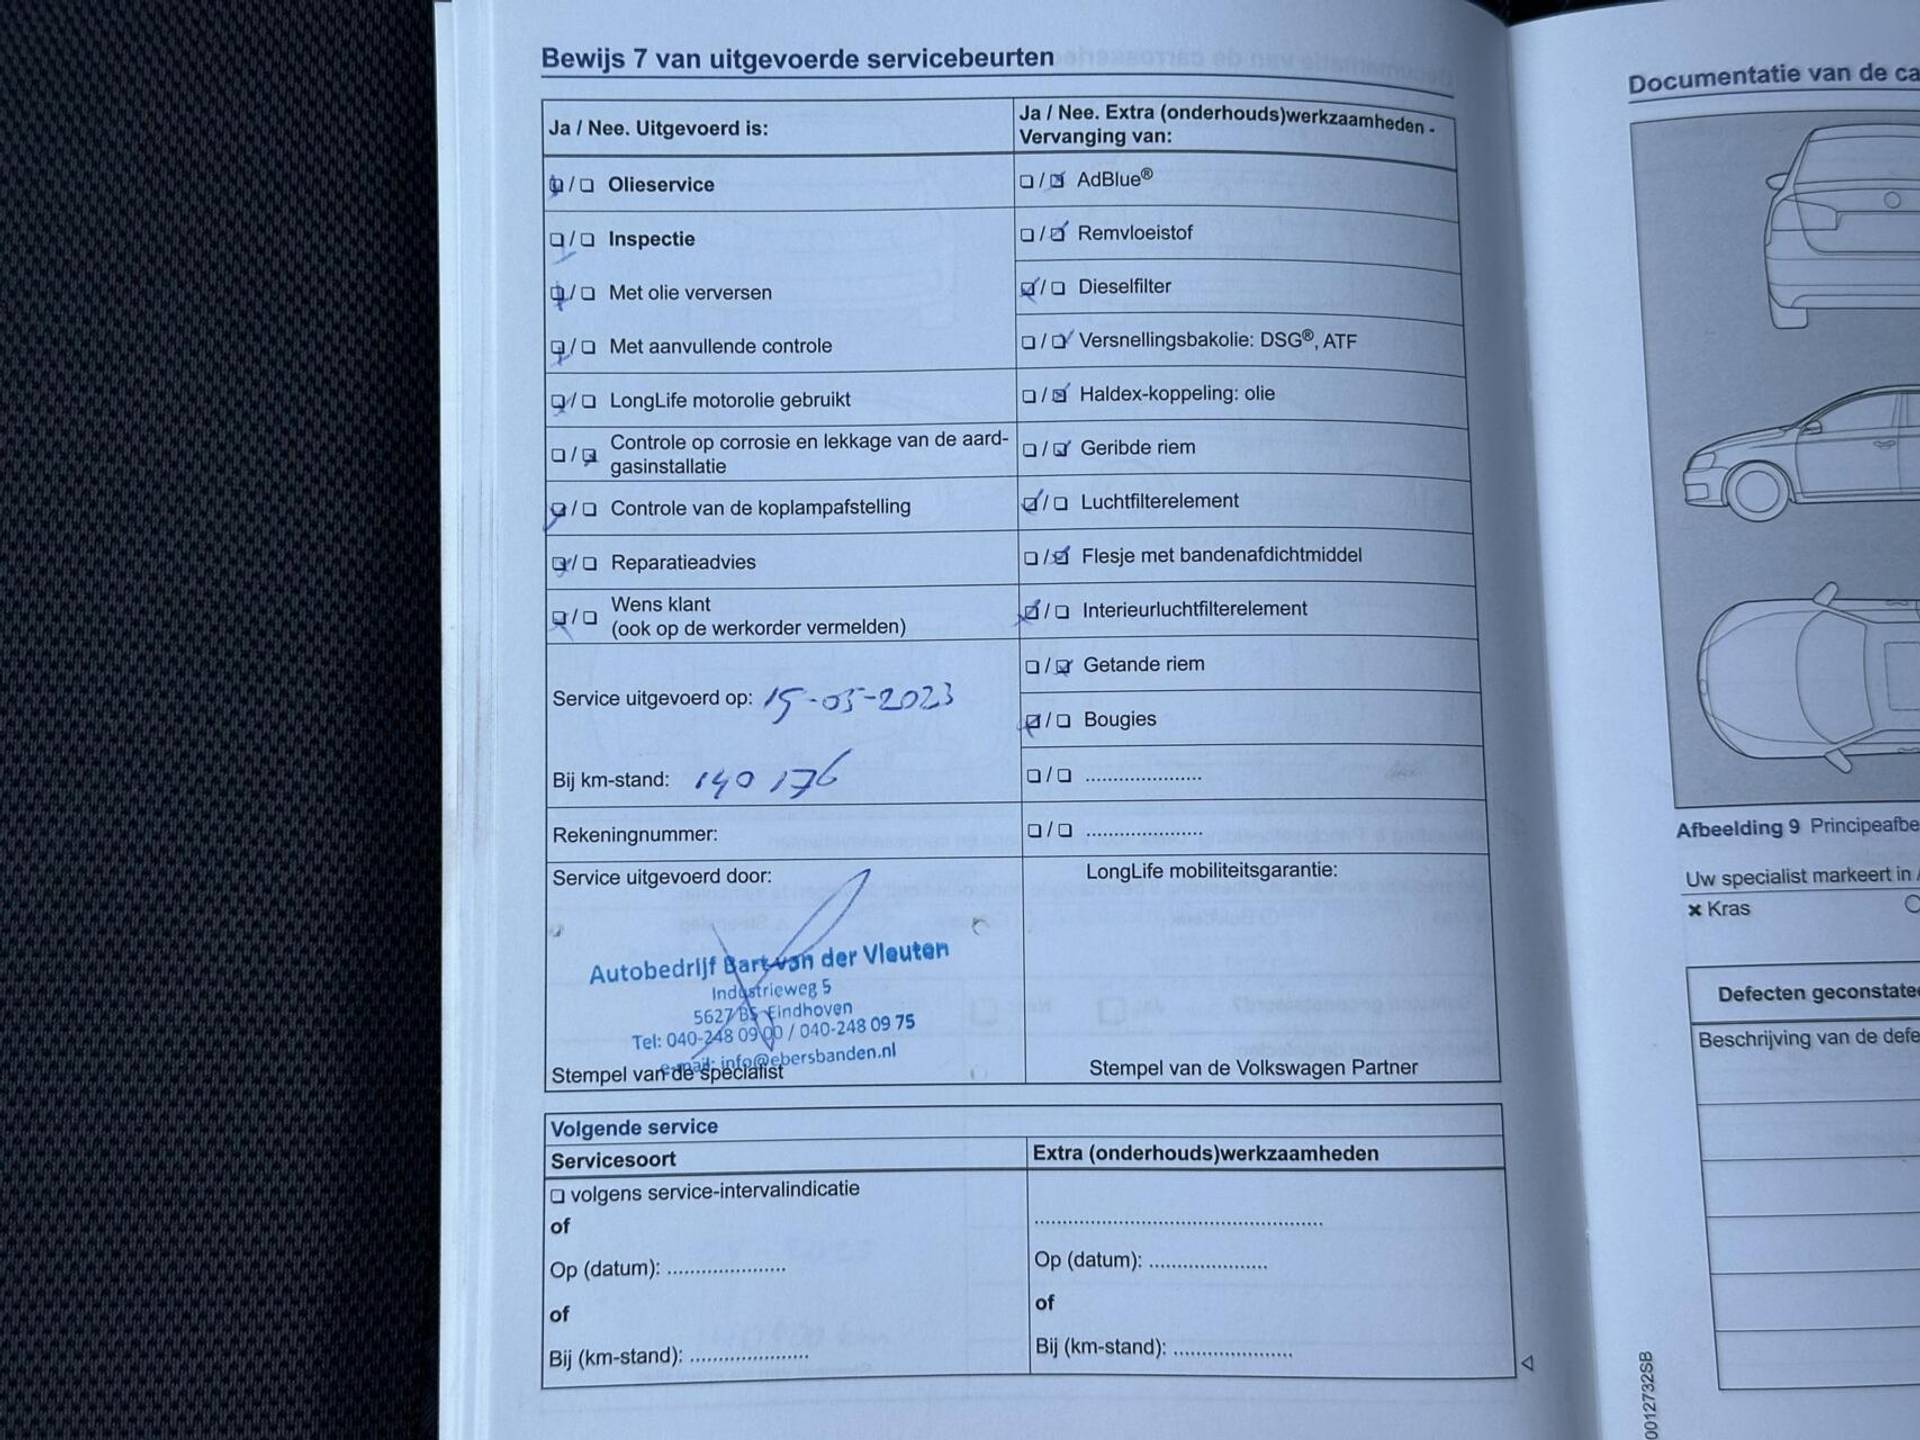 Bewijs 7 van uitgevoerde servicebeurten
Ja / Nee. Uitgevoerd is:
☑ / ☐ Olieservice
☑ / ☐ Inspectie
☑ / ☐ Met olie verversen
☑ / ☐ Met aanvullende controle
☑ / ☐ LongLife motorolie gebruikt
☐ / ☑ Controle op corrosie en lekkage van de aard-
gasinstallatie
☑ / ☐ Controle van de koplampafstelling
☑ / ☐ Reparatieadvies
☑ / ☐ Wens klant
(ook op de werkorder vermelden)
Service uitgevoerd op: 15-05-2023
Bij km-stand: 140 176
Rekeningnummer:
Service uitgevoerd door:
Autobedrijf Bart van der Vleuten
Industrieweg 5
5627 BS Eindhoven
Tel: 040-248 09 00 / 040-248 09 75
e-mail: info@ebersbanden.nl
Stempel van de specialist
Ja / Nee. Extra (onderhouds)werkzaamheden -
Vervanging van:
☐ / ☑ AdBlue®
☐ / ☑ Remvloeistof
☑ / ☐ Dieselfilter
☐ / ☑ Versnellingsbakolie: DSG®, ATF
☐ / ☑ Haldex-koppeling: olie
☐ / ☑ Geribde riem
☑ / ☐ Luchtfilterelement
☐ / ☑ Flesje met bandenafdichtmiddel
☑ / ☐ Interieurluchtfilterelement
☐ / ☑ Getande riem
☑ / ☐ Bougies
☐ / ☐ .....................
☐ / ☐ .....................
LongLife mobiliteitsgarantie:
Stempel van de Volkswagen Partner
Volgende service
Servicesoort
☐ volgens service-intervalindicatie
of
Op (datum): .....................
of
Bij (km-stand): .....................
Extra (onderhouds)werkzaamheden
....................................................
Op (datum): .....................
of
Bij (km-stand): .....................
Documentatie van de ca
Afbeelding 9 Principeafbe
Uw specialist markeert in
× Kras
Defecten geconstatee
Beschrijving van de defe
0012732SB